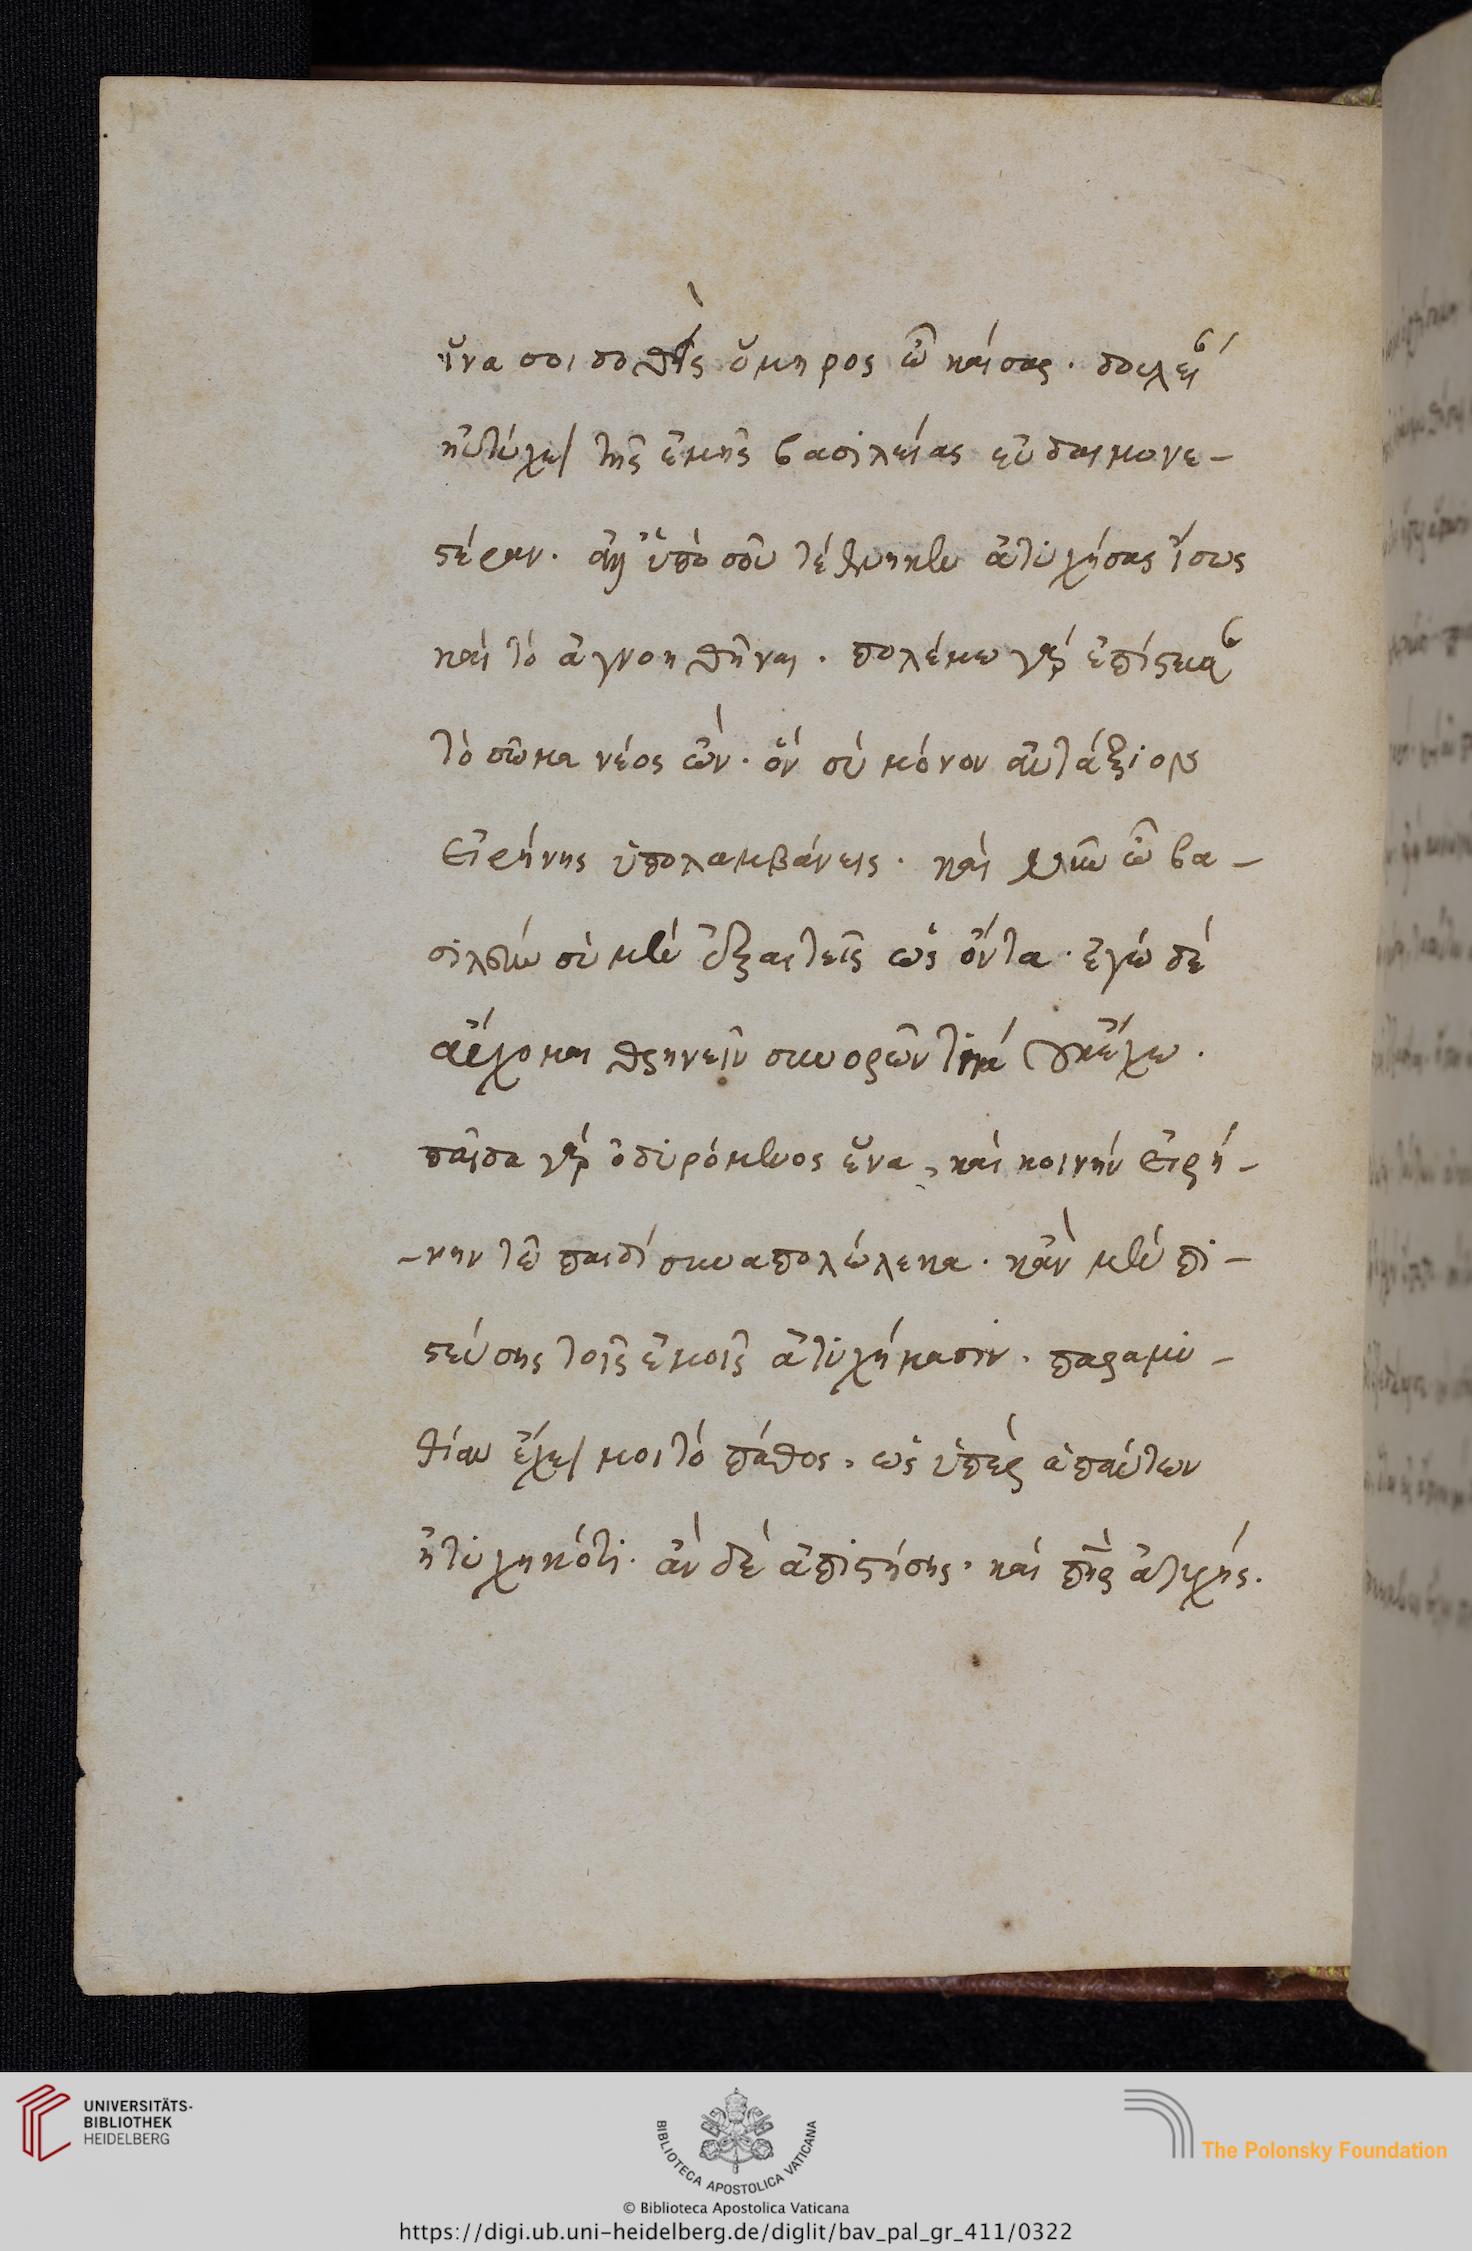 ἵνα σοι δοθεὶς ὅμηρος ὦ καῖσαρ. δουλεί
ηὐτύχει τῆς ἐμῆς βασιλείας εὐδαιμονε-
στέραν. ὑπὸ σοῦ τέθνηκεν ἀτυχήσας ἴσως
καὶ τὸ ἀγνοηθῆναι. πολέμω γὰρ
τὸ σῶμα νέος ὢν. ὃν σὺ μόνον ἀντάξιον
εἰρήνης ὑπολαμβάνεις. καὶ ὦ βα-
σιλεῦ σὺ μὲν ἐξαιτεῖς ὡς ὄντα. ἐγὼ δὲ
ἄρχομαι θρηνεῖν
παῖδα γὰρ ὀδυρόμενος ἕνα, καὶ κοινὴν εἰρή-
-νην τῶ παιδὶ συναπολώλεκα. κἂν μὲν πι-
στεύσης τοῖς ἐμοῖς ἀτυχήμασιν. παραμυ-
θίαν ἔχει μοι τὸ πάθος, ὡς ὑπὲρ ἁπάντων
ἠτυχηκότι. ἂν δὲ ἀπιστήσης. καὶ πατὴρ ἀτυχής.
UNIVERSITÄTS-
BIBLIOTHEK
HEIDELBERG
BIBLIOTECA APOSTOLICA VATICANA
The Polonsky Foundation
© Biblioteca Apostolica Vaticana
https://digi.ub.uni-heidelberg.de/diglit/bav_pal_gr_411/0322